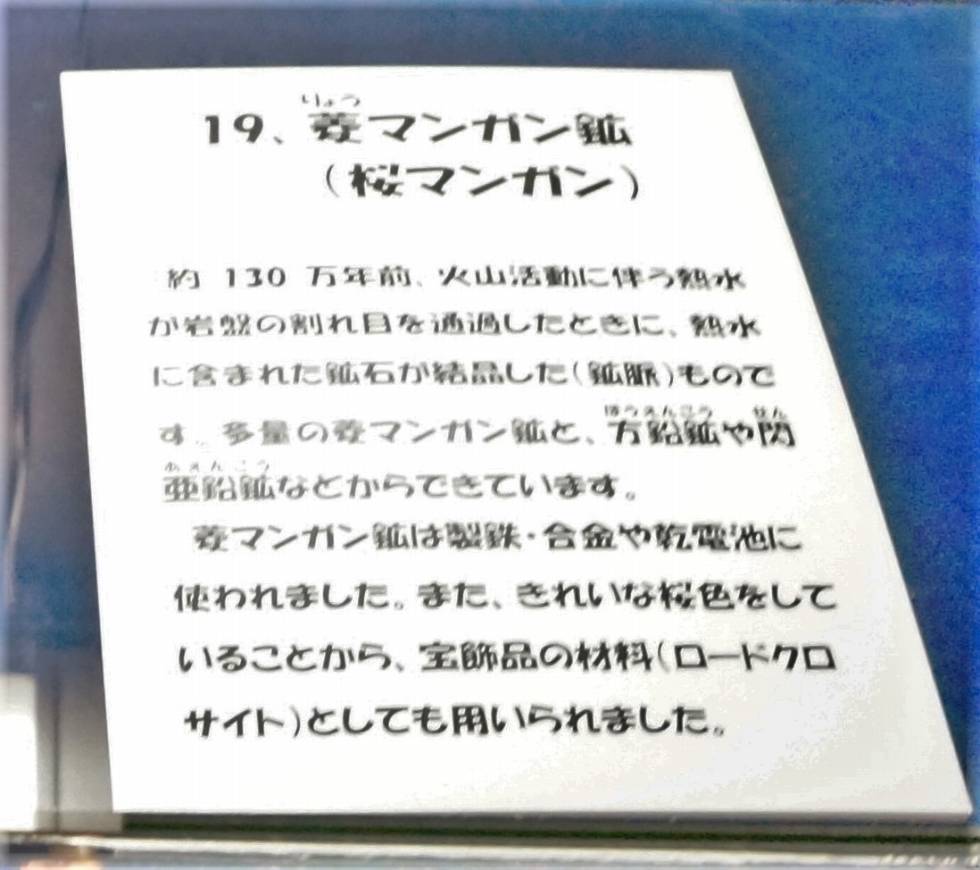 りょう
19、菱マンガン鉱
(桜マンガン)
約 130 万年前、火山活動に伴う熱水
が岩盤の割れ目を通過したときに、熱水
に含まれた鉱石が結晶した(鉱脈)もので
ほうえんこう せん
す。多量の菱マンガン鉱と、方鉛鉱や閃
あえんこう
亜鉛鉱などからできています。
菱マンガン鉱は製鉄・合金や乾電池に
使われました。また、きれいな桜色をして
いることから、宝飾品の材料(ロードクロ
サイト)としても用いられました。